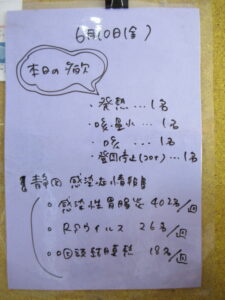 6月10日(金)
本日の病欠
・発熱…1名
・咳・鼻水…1名
・咳…1名
・登園停止(コロナ)…1名
【静岡 感染症情報】
○感染性胃腸炎 402名/週
○RSウイルス 26名/週
○咽頭結膜熱 18名/週